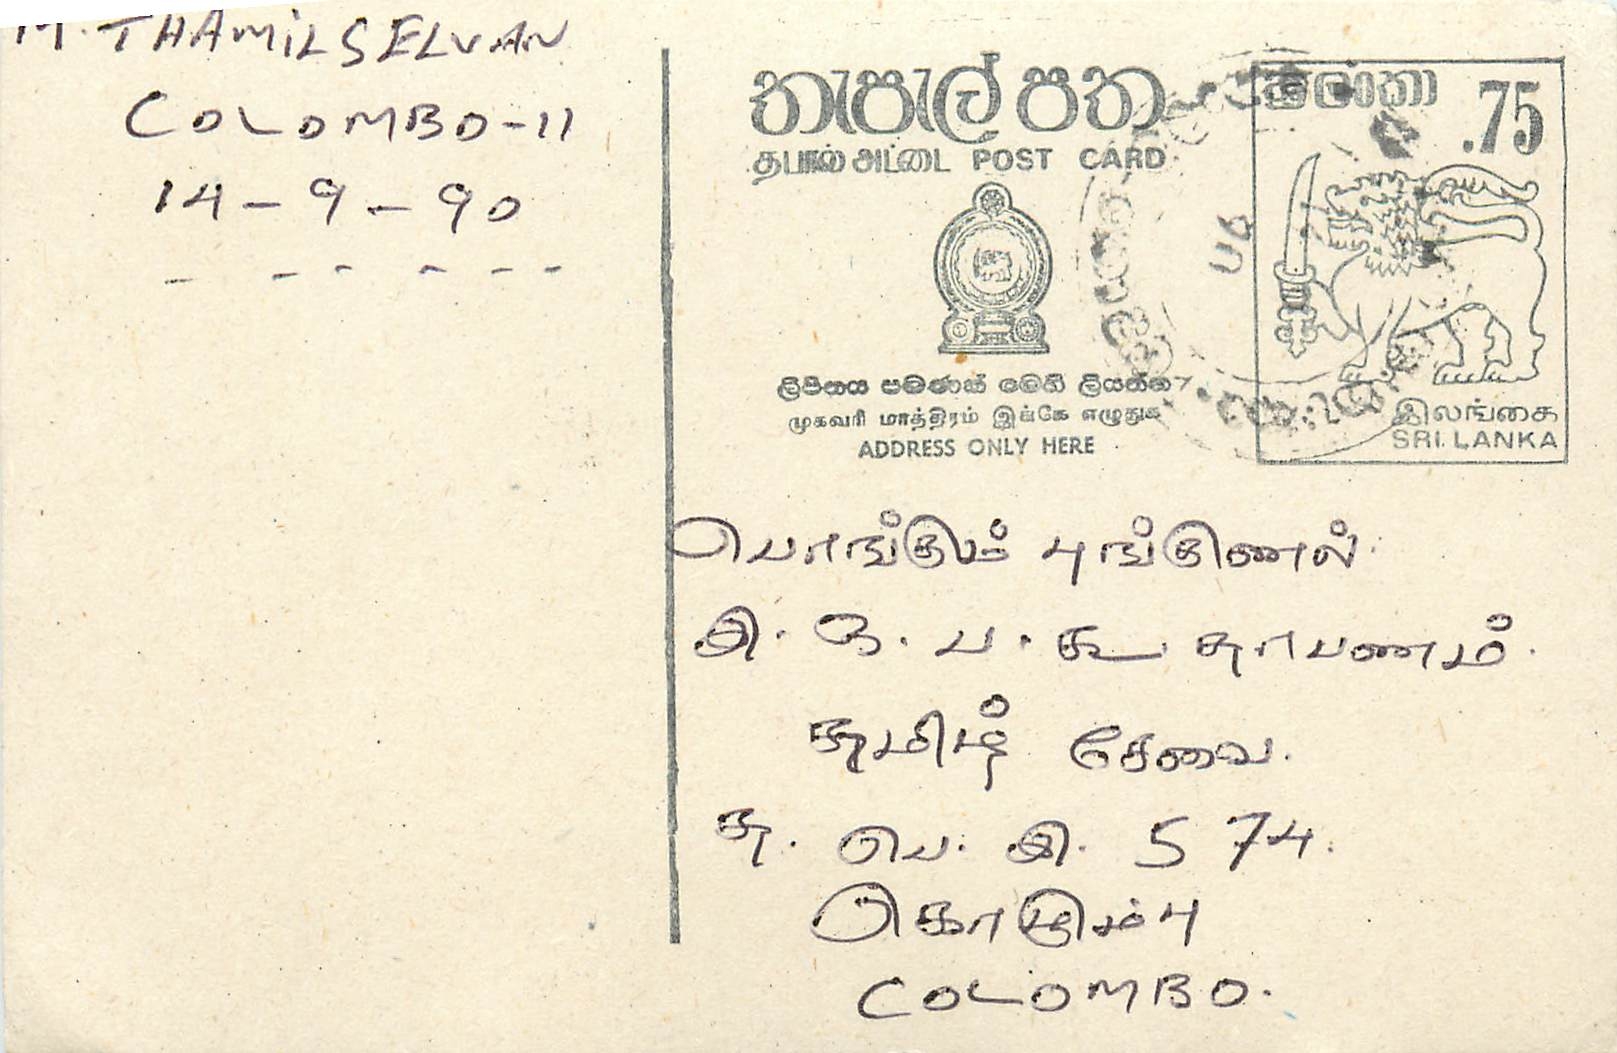 M. THAMILSELVAN
COLOMBO-11
14-9-90
තැපැල් පත
தபால் அட்டை POST CARD
ලංකා .75
ලිපිනය පමණක් මෙහි ලියන්න
முகவரி மாத்திரம் இங்கே எழுதுக
ADDRESS ONLY HERE
இலங்கை
SRI LANKA
பொங்கும் பூங்குணல்
இ. ஒ. ப. கூ தாபணம்.
தமிழ் சேவை.
த. பெ. இ. 574.
கொழும்பு
COLOMBO.